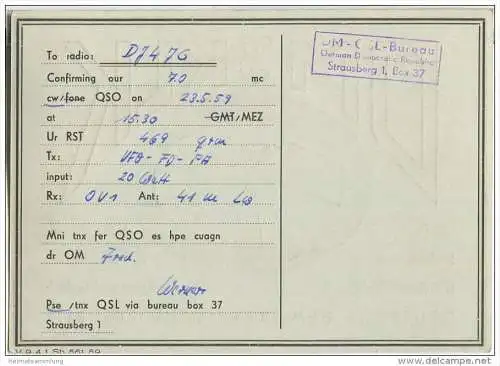 To radio: DJ4JG
DM-QSL-Bureau
German Democratic Republic
Strausberg 1, Box 37
Confirming our 7.0 mc
cw/fone QSO on 23.5.59
at 15.30 GMT/MEZ
Ur RST 469
Tx: VFO-FD-PA
input: 20 Watt
Rx: 0V1 Ant: 41 m
Mni tnx fer QSO es hpe cuagn
dr OM Fred.
Werner
Pse/tnx QSL via bureau box 37
Strausberg 1
heimatsammlung
www.delcampe.net